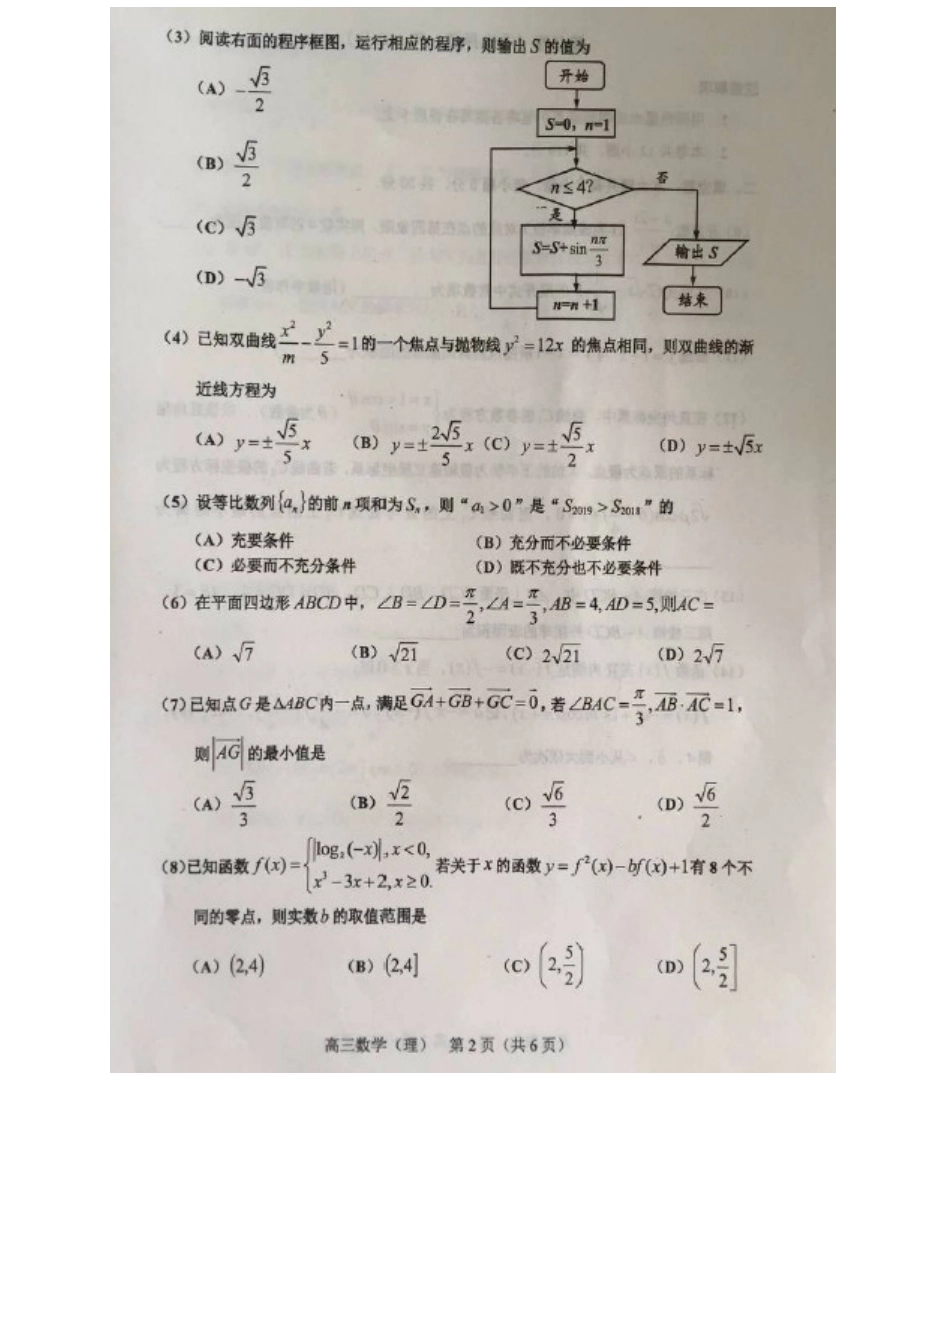 (3) 阅读右面的程序框图，运行相应的程序，则输出 S 的值为
(A) -√3/2
(B) √3/2
(C) √3
(D) -√3
开始
S=0, n=1
n≤4?
否
是
S=S+sin nπ/3
n=n+1
输出 S
结束
(4) 已知双曲线 x²/m - y²/5 = 1 的一个焦点与抛物线 y² = 12x 的焦点相同，则双曲线的渐
近线方程为
(A) y=±√5/5 x (B) y=±2√5/5 x (C) y=±√5/2 x (D) y=±√5x
(5) 设等比数列{aₙ}的前 n 项和为 Sₙ，则 “a₁>0” 是 “S₂₀₁₉>S₂₀₁₈” 的
(A) 充要条件 (B) 充分而不必要条件
(C) 必要而不充分条件 (D) 既不充分也不必要条件
(6) 在平面四边形 ABCD 中，∠B=∠D=π/2, ∠A=π/3, AB=4, AD=5, 则AC=
(A) √7 (B) √21 (C) 2√21 (D) 2√7
(7) 已知点 G 是 △ABC 内一点，满足 GA+GB+GC=0，若 ∠BAC=π/3, AB·AC=1，
则 |AG| 的最小值是
(A) √3/3 (B) √2/2 (C) √6/3 (D) √6/2
(8) 已知函数 f(x)={|log₂(-x)|, x<0, x³-3x+2, x≥0. 若关于 x 的函数 y=f²(x)-bf(x)+1有 8 个不
同的零点，则实数 b 的取值范围是
(A) (2,4) (B) (2,4] (C) (2,5/2) (D) (2,5/2]
高三数学（理） 第 2 页（共 6 页）